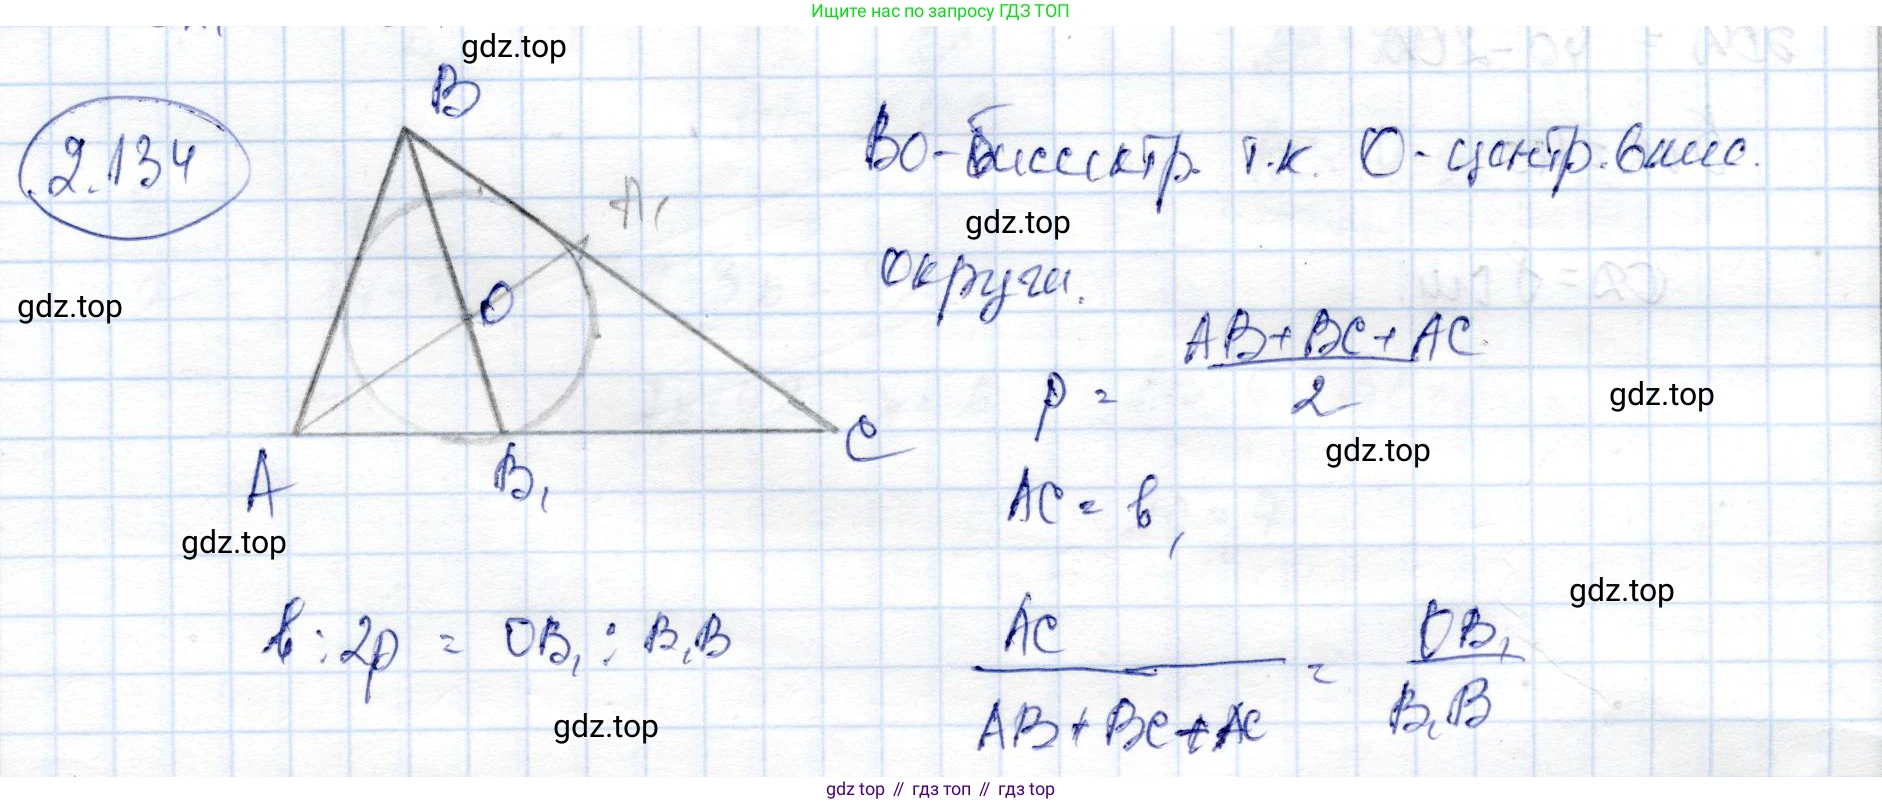 Ищите нас по запросу ГДЗ ТОП
gdz.top
2.134
B
A₁
O
A
B₁
C
BO - биссектр. т.к. O - центр. впис.
gdz.top
округл.
gdz.top
p = (AB + BC + AC) / 2
gdz.top
gdz.top
AC = b,
gdz.top
gdz.top
b : 2p = OB₁ : B₁B
AC / (AB + BC + AC) = OB₁ / B₁B
gdz.top
gdz top // гдз топ // гдз top